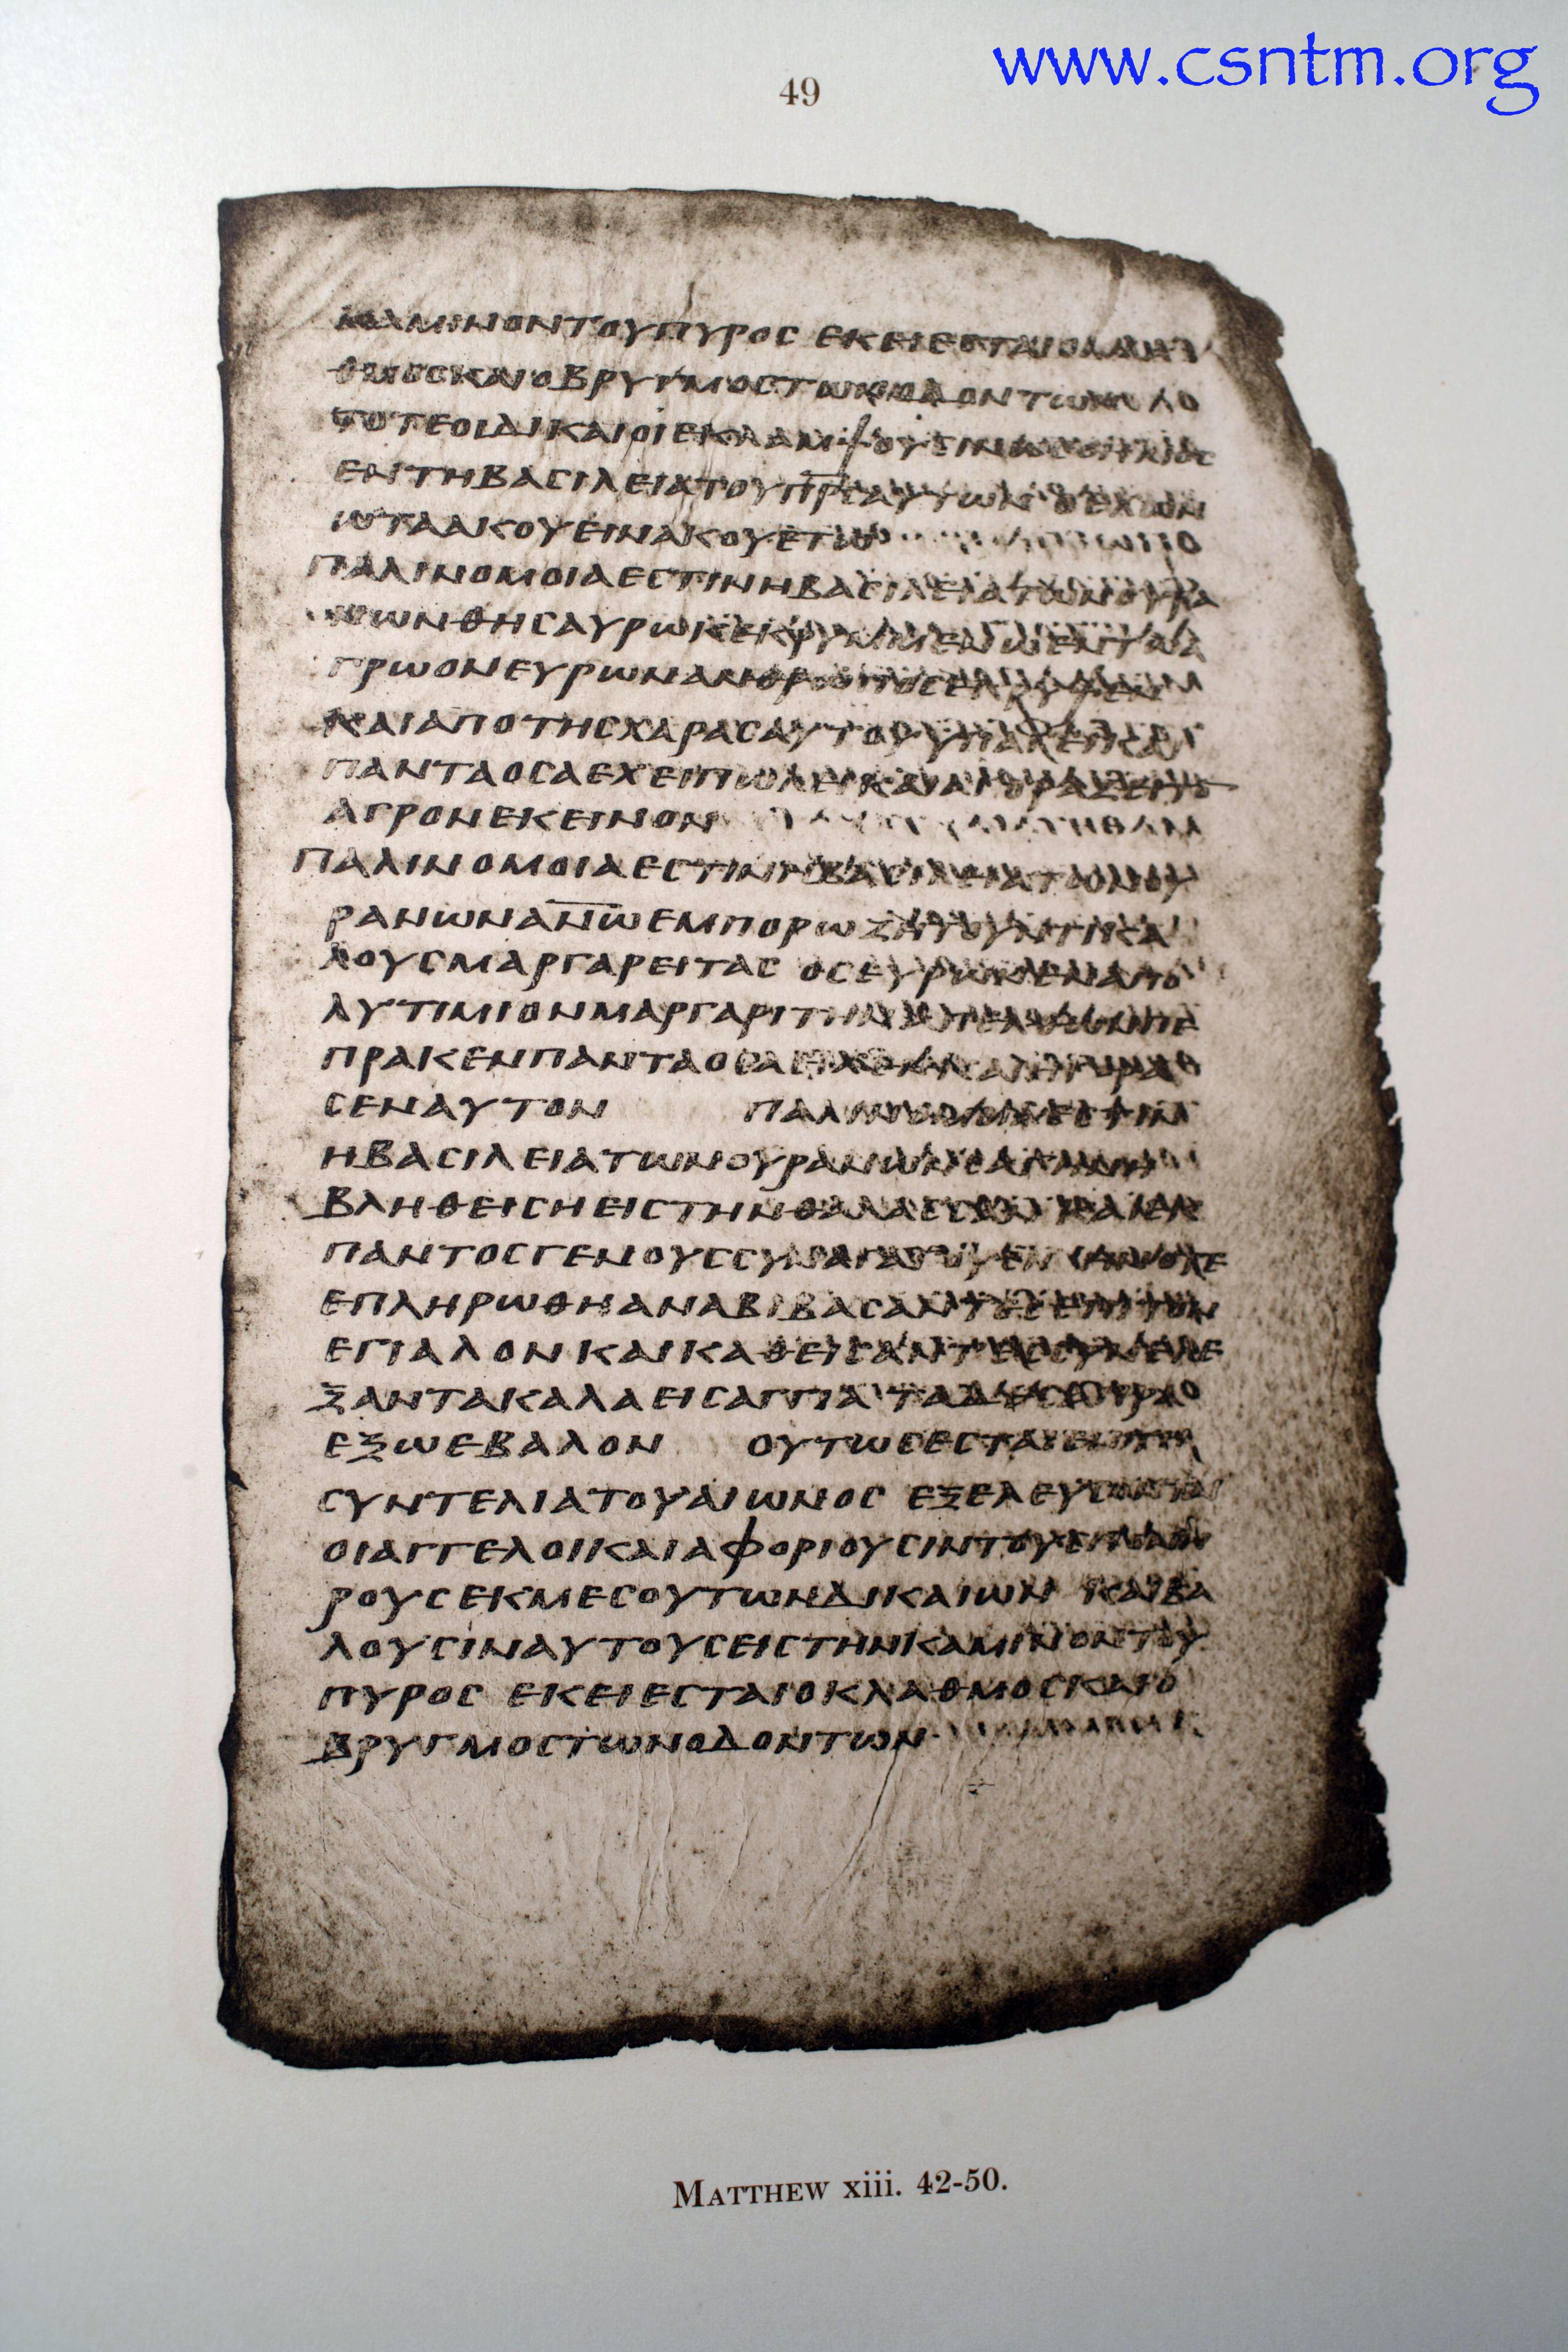 www.csntm.org
49
ΚΑΜΙΝΟΝΤΟΥΠΥΡΟС ΕΚΕΙΕСΤΑΙΟΚΛΑΥ
ΘΜΟСΚΑΙΟΒΡΥΓΜΟСΤΩΝΟΔΟΝΤΩΝ
ΤΟΤΕΟΙΔΙΚΑΙΟΙΕΚΛΑΜΨΟΥСΙΝΩСΟΗΛΙΟС
ΕΝΤΗΒΑСΙΛΕΙΑΤΟΥΠΡ̅С̅ΑΥΤΩΝ ΟΕΧΩΝ
ΩΤΑΑΚΟΥΕΙΝΑΚΟΥΕΤΩ
ΠΑΛΙΝΟΜΟΙΑΕСΤΙΝΗΒΑСΙΛΕΙΑΤΩΝΟΥΡΑ
ΝΩΝΘΗСΑΥΡΩΚΕΚΡΥΜΜΕΝΩΕΝΤΩΑ
ΓΡΩΟΝΕΥΡΩΝΑΝΘΡΩΠΟСΕΚΡΥΨΕΝ
ΚΑΙΑΠΟΤΗСΧΑΡΑСΑΥΤΟΥΥΠΑΓΕΙΚΑΙ
ΠΑΝΤΑΟСΑΕΧΕΙΠΩΛΕΙΚΑΙΑΓΟΡΑΖΕΙΤΟ
ΑΓΡΟΝΕΚΕΙΝΟΝ
ΠΑΛΙΝΟΜΟΙΑΕСΤΙΝΗΒΑСΙΛΕΙΑΤΩΝΟΥ
ΡΑΝΩΝΑΝ̅Ω̅ΕΜΠΟΡΩΖΗΤΟΥΝΤΙΚΑ
ΛΟΥСΜΑΡΓΑΡΕΙΤΑС ΟСΕΥΡΩΝΕΝΑΠΟ
ΛΥΤΙΜΙΟΝΜΑΡΓΑΡΙΤΗΝΑΠΕΛΘΩΝΠΕ
ΠΡΑΚΕΝΠΑΝΤΑΟСΑΕΙΧΕΝΚΑΙΗΓΟΡΑ
СΕΝΑΥΤΟΝ ΠΑΛΙΝΟΜΟΙΑΕСΤΙΝ
ΗΒΑСΙΛΕΙΑΤΩΝΟΥΡΑΝΩΝСΑΓΗΝΗ
ΒΛΗΘΕΙСΗΕΙСΤΗΝΘΑΛΑССΑΝ ΚΑΙΕΚ
ΠΑΝΤΟСΓΕΝΟΥССΥΝΑΓΑΓΟΥСΗ ΟΤΕ
ΕΠΛΗΡΩΘΗΑΝΑΒΙΒΑСΑΝΤΕСΕΠΙΤΟΝ
ΕΓΙΑΛΟΝΚΑΙΚΑΘΕΙСΑΝΤΕССΥΝΕΛΕ
ΞΑΝΤΑΚΑΛΑΕΙСΑΓΓΙΑ ΤΑΔΕСΑΠΡΑ
ΕΞΩΕΒΑΛΟΝ ΟΥΤΩСΕСΤΑΙΕΝΤΗ
СΥΝΤΕΛΙΑΤΟΥΑΙΩΝΟС ΕΞΕΛΕΥСΟΝΤΑΙ
ΟΙΑΓΓΕΛΟΙΚΑΙΑΦΟΡΙΟΥСΙΝΤΟΥСΠΟΝΗ
ΡΟΥСΕΚΜΕСΟΥΤΩΝΔΙΚΑΙΩΝ ΚΑΙΒΑ
ΛΟΥСΙΝΑΥΤΟΥСΕΙСΤΗΝΚΑΜΙΝΟΝΤΟΥ
ΠΥΡΟС ΕΚΕΙΕСΤΑΙΟΚΛΑΘΜΟСΚΑΙΟ
ΒΡΥΓΜΟСΤΩΝΟΔΟΝΤΩΝ
MATTHEW xiii. 42-50.